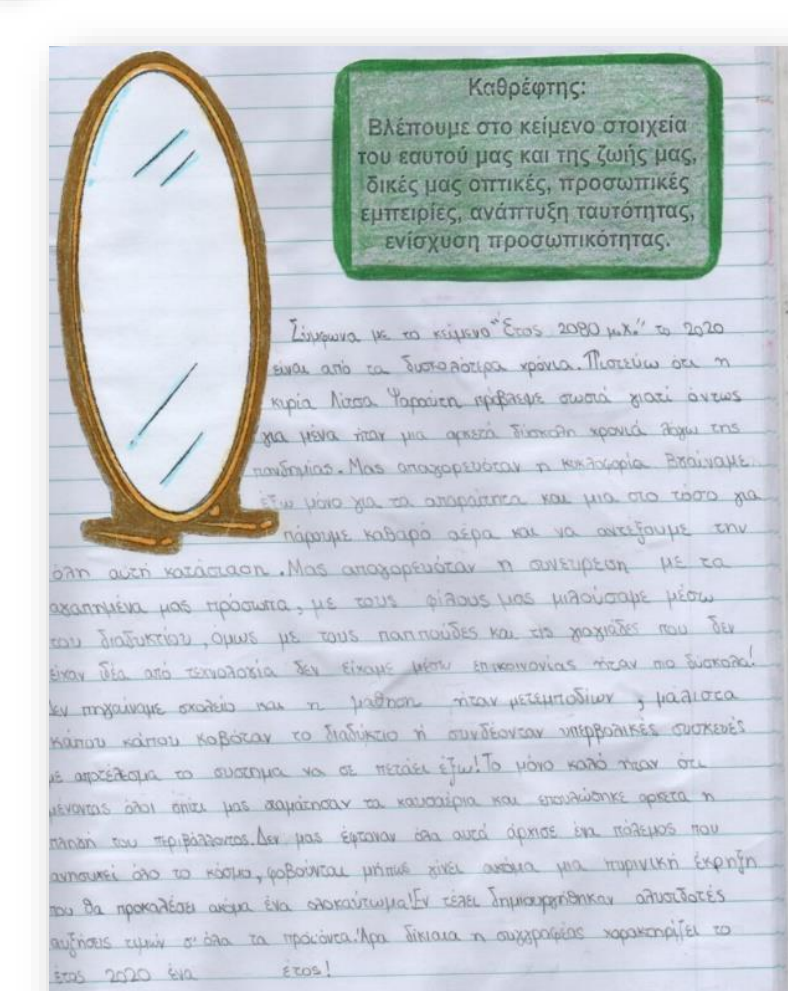 Καθρέφτης:
Βλέπουμε στο κείμενο στοιχεία
του εαυτού μας και της ζωής μας,
δικές μας οπτικές, προσωπικές
εμπειρίες, ανάπτυξη ταυτότητας,
ενίσχυση προσωπικότητας.
Σύμφωνα με το κείμενο "Έτος 2080 μ.Χ." το 2020
είναι από τα δυσκολότερα χρόνια. Πιστεύω ότι η
κυρία Λίτσα Ψαραύτη πρόβλεψε σωστά γιατί όντως
για μένα ήταν μια αρκετά δύσκολη χρονιά λόγω της
πανδημίας. Μας απαγορευόταν η κυκλοφορία. Βγαίναμε
έξω μόνο για τα απαραίτητα και μια στο τόσο για
πάρουμε καθαρό αέρα και να αντέξουμε την
όλη αυτή κατάσταση. Μας απαγορευόταν η συνεύρεση με τα
αγαπημένα μας πρόσωπα, με τους φίλους μας μιλούσαμε μέσω
του διαδυκτίου, όμως με τους παππούδες και τις γιαγιάδες που δεν
είχαν ιδέα από τεχνολογία δεν είχαμε μέσω επικοινωνίας ήταν πιο δύσκολα!
Δεν πηγαίναμε σχολείο και η μάθηση ήταν μετεμποδίων, μάλιστα
κάπου κάπου κοβόταν το διαδύκτιο ή συνδέονταν υπερβολικές συσκευές
με αποτέλεσμα το σύστημα να σε πετάει έξω! Το μόνο καλό ήταν ότι
μένοντας όλοι σπίτι μας σταμάτησαν τα καυσαέρια και επουλώθηκε αρκετά η
πληγή του περιβάλλοντος. Δεν μας έφταναν όλα αυτά άρχισε ένα πόλεμος που
ανησυχεί όλο το κόσμο, φοβούνται μήπως γίνει ακόμα μια πυρινική έκρηξη
που θα προκαλέσει ακόμα ένα ολοκαύτωμα! Εν τέλει δημιουργήθηκαν αλυσιδοτές
αυξήσεις τιμών σ' όλα τα προϊόντα. Άρα δίκαια η συγγραφέας χαρακτηρίζει το
έτος 2020 ένα έτος!